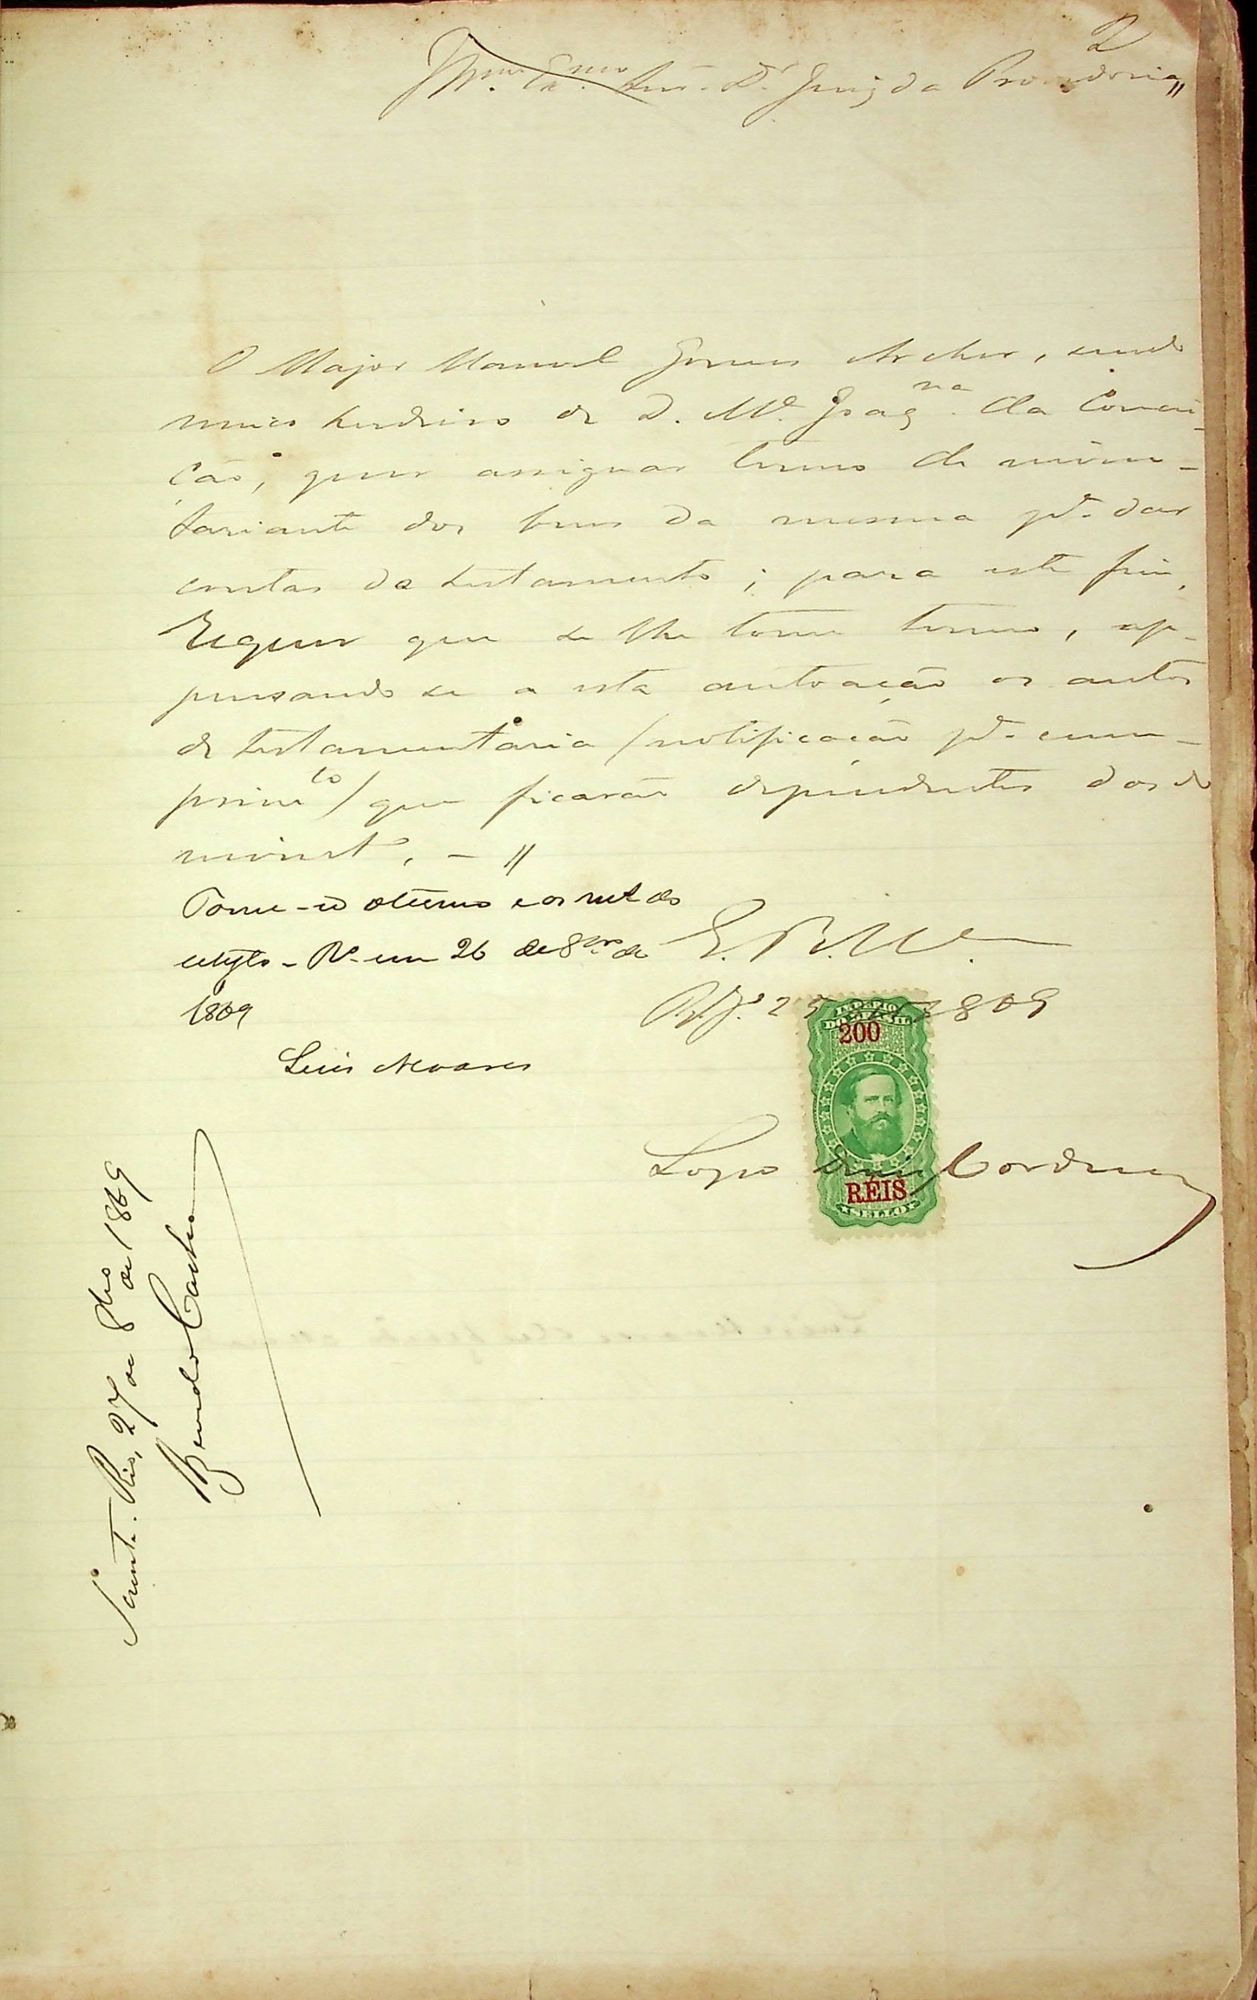 2
Illmo. Exmo. Snr. Dr. Juiz da Provedoria
O Major Manoel Gomes Archer, sendo
unico herdeiro de D. Ma. Joaqna. da Concei-
ção, quer assignar termo de inven-
tariante dos bens da mesma pa. dar
contas do testamento; para este fim,
Requer que se lhe tome termo, ap-
pensando se a esta autoação os autos
de testamentaria (notificação pa. cum-
primto) que ficarão dependentes dos do
invent.º. - //
Tome-se o termo e os mel do
estylo - Rº. em 26 de 8bro. de
1869
Luis Alvares
E. R. Mce.
Rº. Jº. 25 1869
IMPERIO
DO BRASIL
200
RÉIS
SELLO
Lopo Diniz Cordeiro
Scientе. Rio, 27 de 8bro de 1869